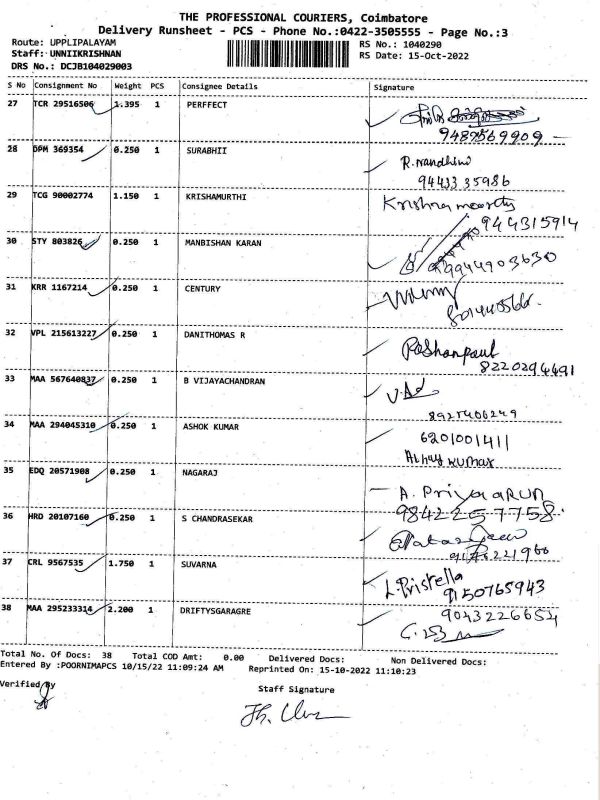 THE PROFESSIONAL COURIERS, Coimbatore
Delivery Runsheet - PCS - Phone No.:0422-3505555 - Page No.:3
Route: UPPLIPALAYAM RS No.: 1040290
Staff: UNNIKRISHNAN RS Date: 15-Oct-2022
DRS No.: DCJB104029003
S No Consignment No Weight PCS Consignee Details Signature
27 TCR 29516506 1.395 1 PERFFECT
9487569909
28 DPM 369354 0.250 1 SURABHII R.Nandhini
94433 35986
29 TCG 90002774 1.150 1 KRISHAMURTHI Krishnamoorthy
944315914
30 STY 803826 0.250 1 MANBISHAN KARAN
9944903630
31 KRR 1167214 0.250 1 CENTURY
32 VPL 215613227 0.250 1 DANITHOMAS R Roshanpaul
8220294491
33 MAA 567640837 0.250 1 B VIJAYACHANDRAN
8925406249
34 MAA 294045310 0.250 1 ASHOK KUMAR 6201001411
Kumar
35 EDQ 20571908 0.250 1 NAGARAJ A. Priya ARUN
9842257758
36 HRD 20107160 0.250 1 S CHANDRASEKAR
37 CRL 9567535 1.750 1 SUVARNA L.Pristella
9150765943
38 MAA 295233314 2.200 1 DRIFTYSGARAGRE 9043226654
Total No. Of Docs: 38 Total COD Amt: 0.00 Delivered Docs: Non Delivered Docs:
Entered By :POORNIMAPCS 10/15/22 11:09:24 AM Reprinted On: 15-10-2022 11:10:23
Verified By Staff Signature